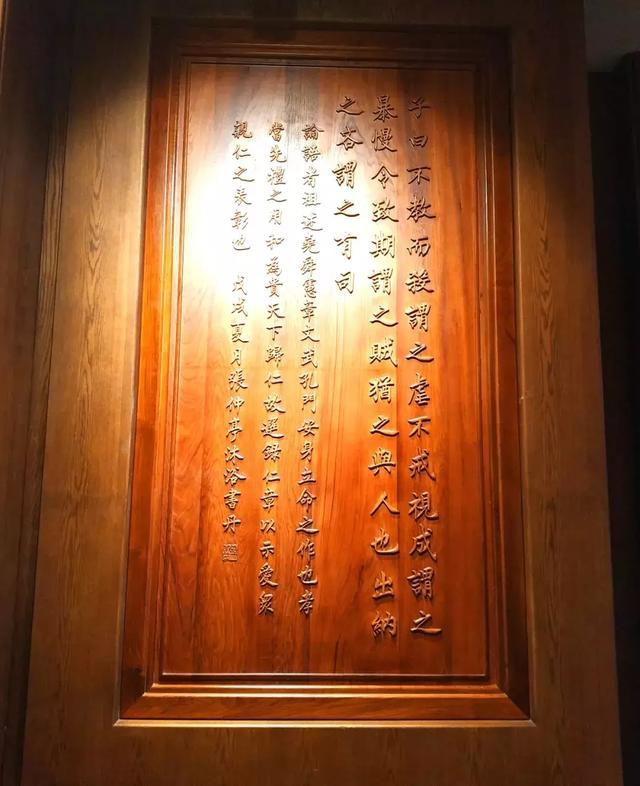 子曰不教而殺謂之虐不戒視成謂之
暴慢令致期謂之賊猶之與人也出納
之吝謂之有司
論語者祖述堯舜憲章文武孔門安身立命之作也孝
當先禮之用和為貴天下歸仁故選錄仁章以示愛眾
親仁之表彰也 戊戌夏月張仲亭沐浴書丹